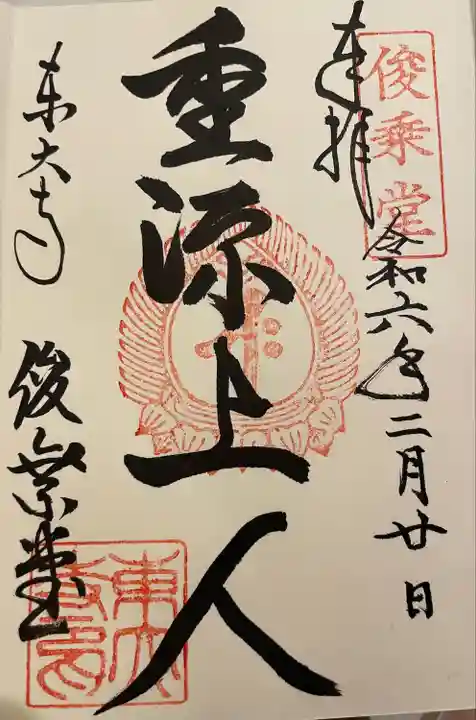 俊乗堂
奉拝
令和六年二月廿日
重源上人
東大寺
俊乗堂
東大寺印